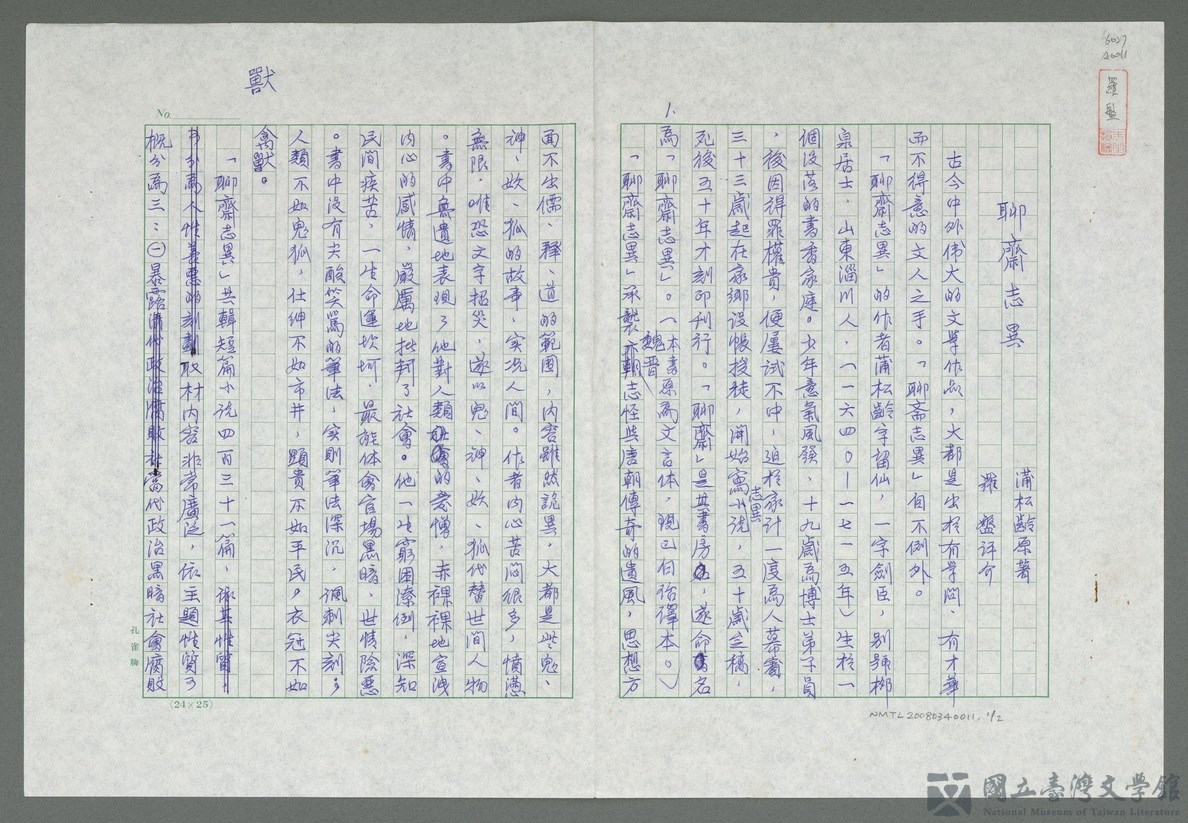 6027
20011
羅盤
1.
聊齋志異
蒲松齡原著
羅盤評介
古今中外偉大的文學作品，大都是出於有學問、有才華
而不得意的文人之手。「聊斋志異」自不例外。
「聊齋志異」的作者蒲松齡字留仙，一字劍臣，別號柳
泉居士，山東淄川人，（一六四０—一七一五年）生於一
個没落的書香家庭。少年意氣風發，十九歲為博士弟子員
，後因得罪權貴，便屢試不中，迫於家计一度為人幕賓，
三十三歲起在家鄉设帳授徒，開始寫志異小说，五十歲完稿，
死後五十年才刻印刊行。「聊齋」是其書房名，遂命名
為「聊齋志異」。（本書原為文言体，現已有语譯本。）
「聊齋志異」承襲魏晉六朝志怪与唐朝傳奇的遺風，思想方
面不出儒、釋、道的範圍，内容雖然詭異，大都是些鬼、
神、妖、狐的故事，实说人間。作者内心苦悶很多，憤懣
無限，唯恐文字招災，遂以鬼、神、妖、狐代替世間人物
。書中無遺地表現了他對人類的爱憎，赤裸裸地宣洩
内心的感情，嚴厲地抨擊了社會。他一生窮困潦倒，深知
民間疾苦，一生命運坎坷，最能体會官場黑暗、世情險惡
。書中没有尖酸笑罵的筆法，实則筆法深沉，諷刺尖刻，
人類不如鬼狐，仕绅不如市井，顕貴不如平民，衣冠不如
禽獸。
獸
「聊齋志異」共輯短篇小说四百三十一篇，
取材内容非常廣泛，依主題性質可
概分為三：㊀暴露當代政治黑暗社會腐敗
No.
(24×25)
孔雀牌
NMTL20080340011, 1/2
國立臺灣文學館
National Museum of Taiwan Literature